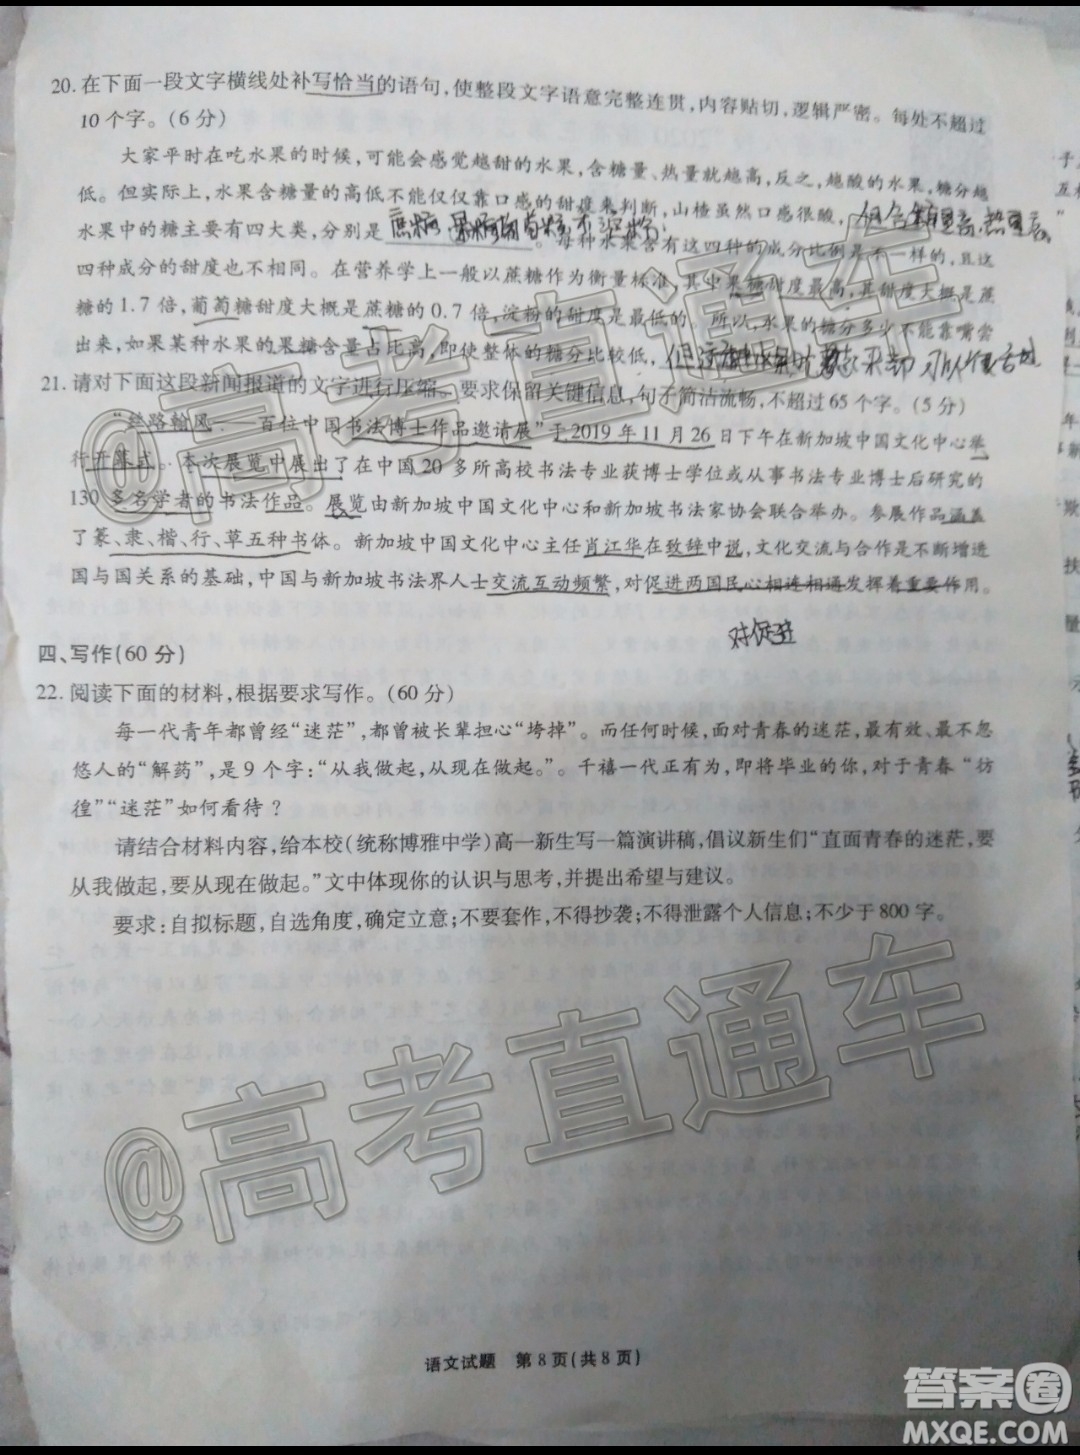 20. 在下面一段文字横线处补写恰当的语句,使整段文字语意完整连贯,内容贴切,逻辑严密。每处不超过
10个字。(6分)
大家平时在吃水果的时候,可能会感觉越甜的水果,含糖量、热量就越高,反之,越酸的水果,糖分越
低。但实际上,水果含糖量的高低不能仅仅靠口感的甜度来判断,山楂虽然口感很酸,
水果中的糖主要有四大类,分别是 。每种水果含有这四种的成分比例是不一样的,且这
四种成分的甜度也不相同。在营养学上一般以蔗糖作为衡量标准,其中果糖甜度最高,其甜度大概是蔗
糖的1.7倍,葡萄糖甜度大概是蔗糖的0.7倍,淀粉的甜度是最低的。所以,水果的糖分多少不能靠嘴尝
出来,如果某种水果的果糖含量占比高,即使整体的糖分比较低,
21. 请对下面这段新闻报道的文字进行压缩。要求保留关键信息,句子简洁流畅,不超过65个字。(5分)
“丝路翰风——百位中国书法博士作品邀请展”于2019年11月26日下午在新加坡中国文化中心举
行开幕式。本次展览中展出了在中国20多所高校书法专业获博士学位或从事书法专业博士后研究的
130多名学者的书法作品。展览由新加坡中国文化中心和新加坡书法家协会联合举办。参展作品涵盖
了篆、隶、楷、行、草五种书体。新加坡中国文化中心主任肖江华在致辞中说,文化交流与合作是不断增进
国与国关系的基础,中国与新加坡书法界人士交流互动频繁,对促进两国民心相连相通发挥着重要作用。
对促进
四、写作(60分)
22. 阅读下面的材料,根据要求写作。(60分)
每一代青年都曾经“迷茫”,都曾被长辈担心“垮掉”。而任何时候,面对青春的迷茫,最有效、最不
悠人的“解药”,是9个字:“从我做起,从现在做起。”。千禧一代正有为,即将毕业的你,对于青春“彷
徨”“迷茫”如何看待?
请结合材料内容,给本校(统称博雅中学)高一新生写一篇演讲稿,倡议新生们“直面青春的迷茫,要
从我做起,要从现在做起。”文中体现你的认识与思考,并提出希望与建议。
要求:自拟标题,自选角度,确定立意;不要套作,不得抄袭;不得泄露个人信息;不少于800字。
@高考直通车
@高考直通车
语文试题 第8页(共8页)
答案圈
MXQE.COM